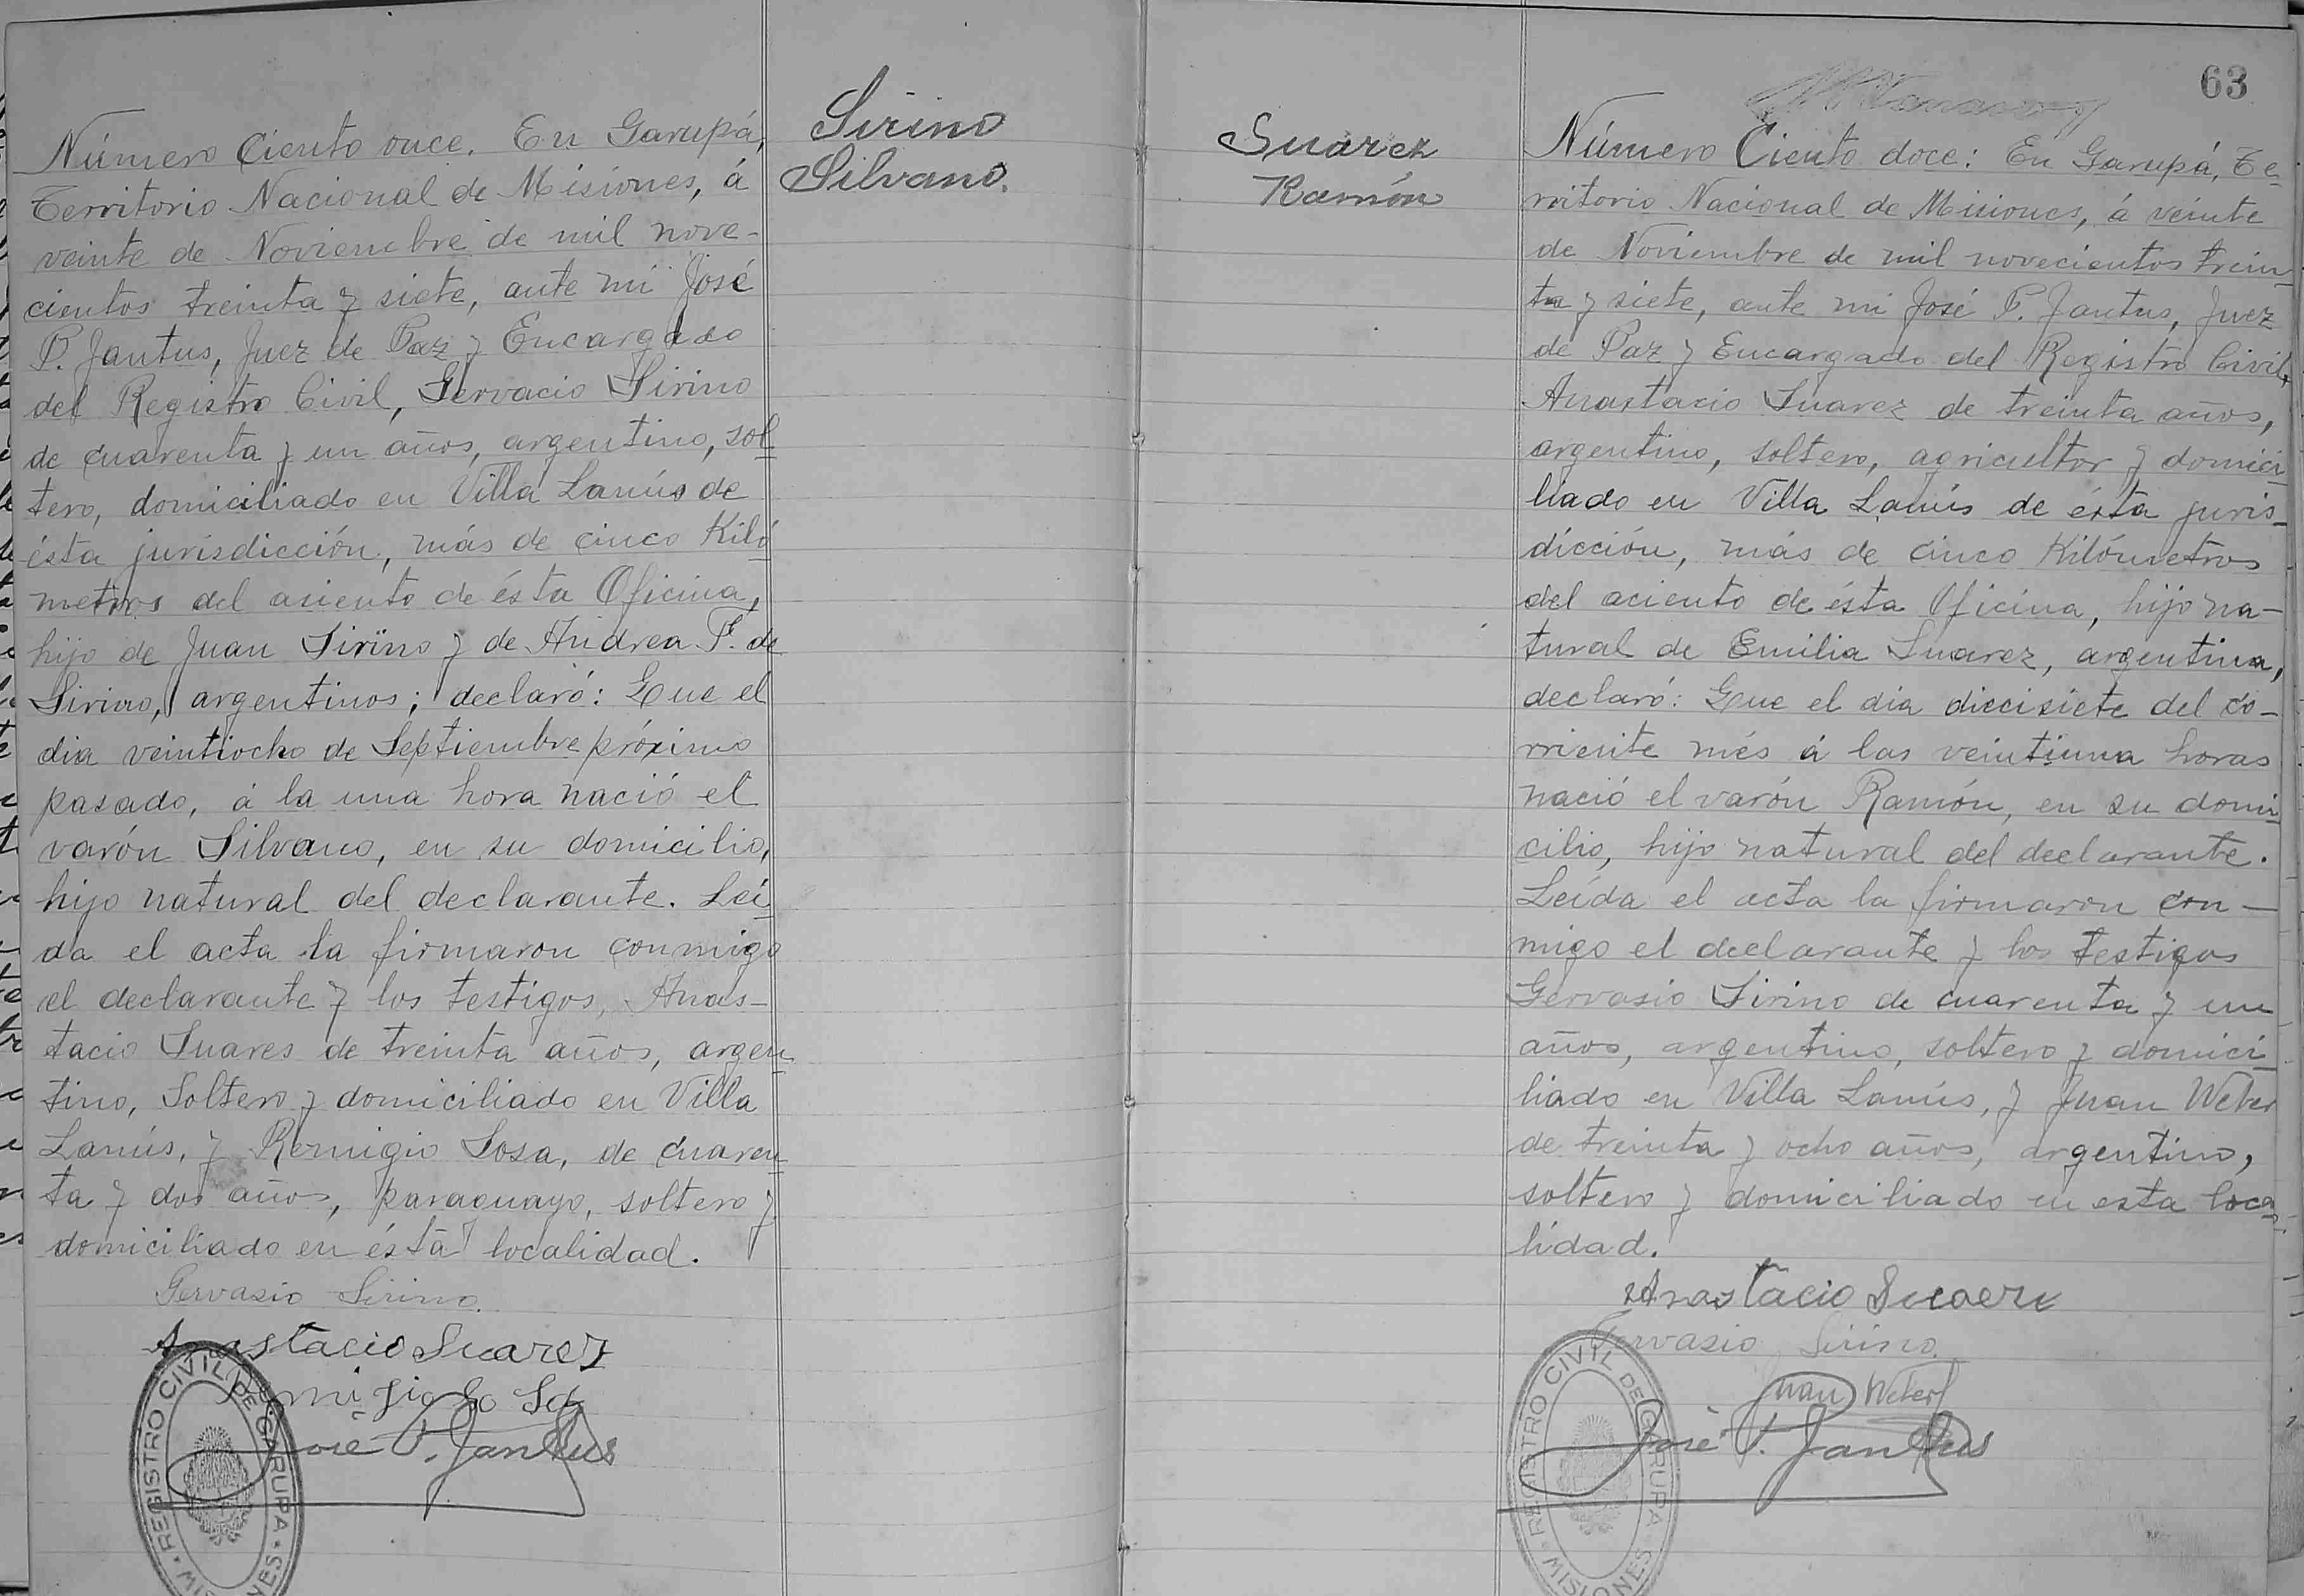 Sirino
Silvano.
Número Ciento once. En Garupá,
Territorio Nacional de Misiones, á
veinte de Noviembre de mil nove-
cientos treinta y siete, ante mi José
P. Jantus, Juez de Paz y Encargado
del Registro Civil, Gervacio Sirino
de cuarenta y un años, argentino, sol
tero, domiciliado en Villa Lanús de
ésta jurisdicción, más de cinco Kiló
metros del asiento de ésta Oficina,
hijo de Juan Sirino y de Andrea F. de
Sirino, argentinos; declaró: Que el
dia veintiocho de Septiembre próximo
pasado, á la una hora nació el
varón Silvano, en su domicilio,
hijo natural del declarante. Leí
da el acta la firmaron conmigo
el declarante y los testigos, Anas-
tacio Suares de treinta años, argen
tino, Soltero y domiciliado en Villa
Lanús, y Remigio Sosa, de cuaren
ta y dos años, paraguayo, soltero y
domiciliado en ésta localidad.
Gervasio Sirino.
Anastacio Suarez
Remigio So Sa
José P. Jantus
REGISTRO CIVIL DE GARUPA
MISIONES
63
Suarez
Ramón
Número Ciento doce: En Garupá, Te-
rritorio Nacional de Misiones, á veinte
de Noviembre de mil novecientos trein
ta y siete, ante mi José P. Jantus, Juez
de Paz y Encargado del Registro Civil,
Anastacio Suarez de treinta años,
argentino, soltero, agricultor y domici
liado en Villa Lanús de ésta juris-
dicción, más de cinco Kilómetros
del aciento de ésta Oficina, hijo na-
tural de Emilia Suarez, argentina,
declaró: Que el dia diecisiete del co-
rriente més á las veintiuna horas
nació el varón Ramón, en su domi
cilio, hijo natural del declarante.
Leída el acta la firmaron con-
migo el declarante y los testigos
Gervasio Sirino de cuarenta y un
años, argentino, soltero y domici
liado en Villa Lanús, y Juan Weber
de treinta y ocho años, argentino,
soltero y domiciliado en esta loca
lidad.
Anastacio Sucaerz
Gervasio Sirino.
Juan Weber
José P. Jantus
REGISTRO CIVIL DE GARUPA
MISIONES